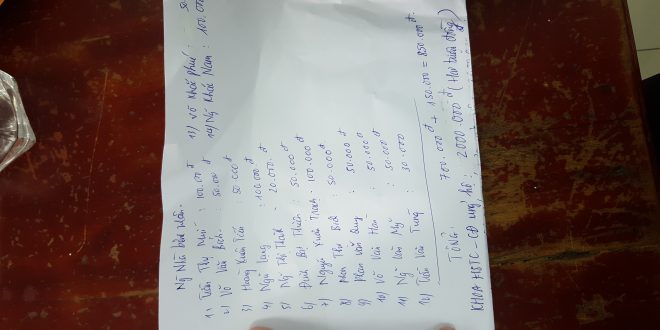 Ng Nhà hảo tâm.
1) Trần Thị Nhớ : 100.000 đ
2) Võ Văn Bích : 50.000 đ
3) Hoàng Xuân Tiến : 50.000 đ
4) Ngụ Tụng : 100.000 đ
5) Ng Thị Thanh : 20.000 đ
6) Đinh Bạt Thiên : 50.000 đ
7) Nguyễn Xuân Trạch : 100.000 đ
8) Phan Thị Bích : 50.000 đ
9) Phan Văn Quy : 50.000 đ
10) Võ Văn Hóa : 50.000 đ
11) Ng Văn Mỹ : 50.000 đ
12) Trần Văn Tùng : 30.000
13) Võ Khắc Phú : 50
14) Ng Khắc Nam : 100.000
TỔNG : 700.000 đ + 150.000 = 850.000 đ.
KHOA HSTC - CĐ ủng hộ : 2000.000 đ (Hai triệu đồng)